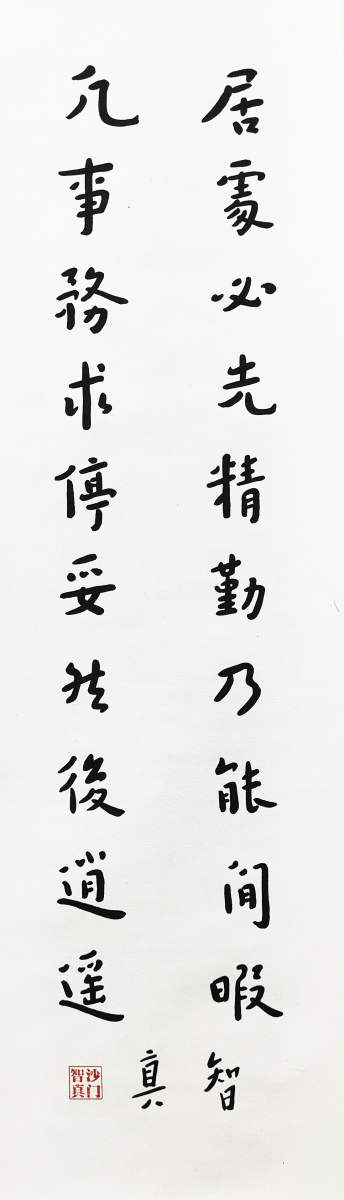 居處必先精勤乃能閒暇
凡事務求停妥然後逍遥
智真
沙门智真